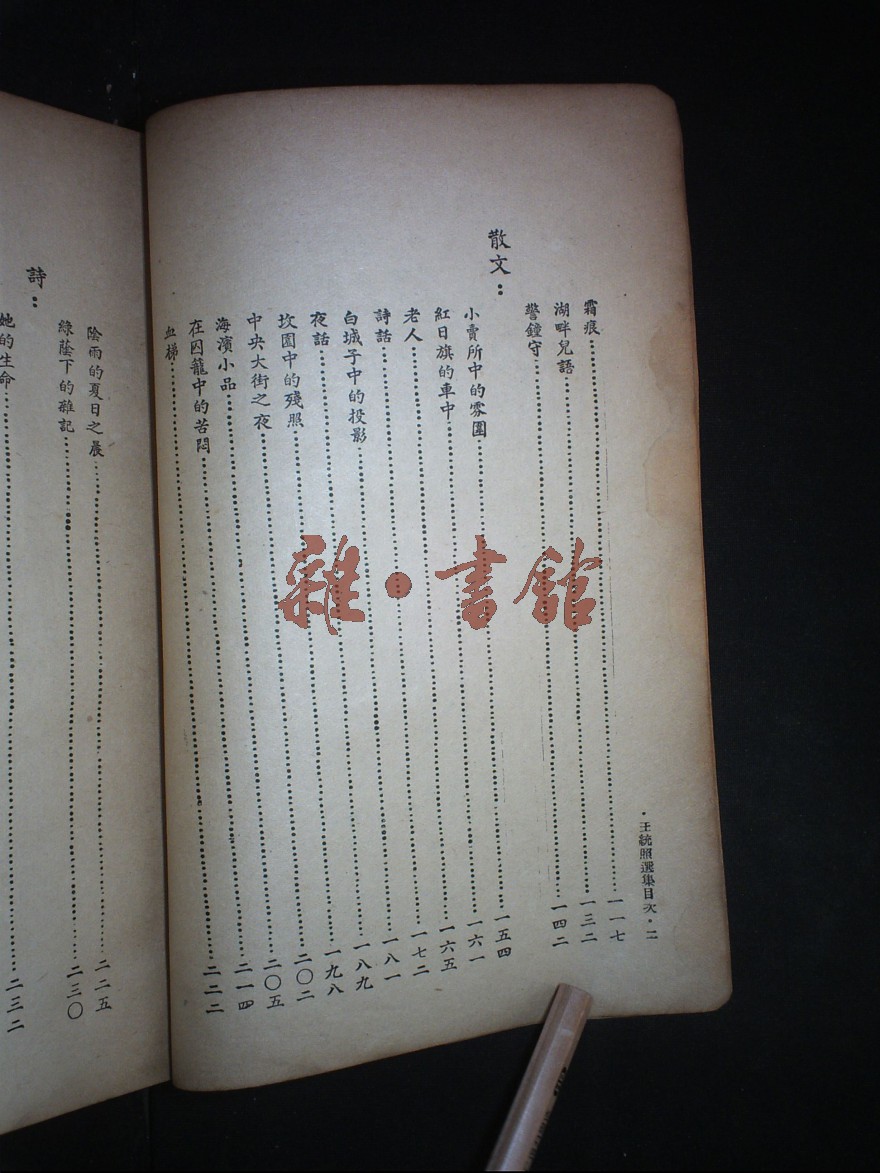 ·王統照選集目次·二
霜痕……一一七
湖畔兒語……一三二
警鐘守……一四二
散文：
小賣所中的雰圍……一五四
紅日旗的車中……一六一
老人……一六五
詩話……一七二
白城子中的投影……一八一
夜話……一八九
坎園中的殘照……一九八
中央大街之夜……二〇二
海濱小品……二〇五
在囚籠中的苦悶……二一四
血梯……二二二
陰雨的夏日之晨……二二五
綠蔭下的雜記……二三〇
詩：
她的生命……二三二
雜·書館